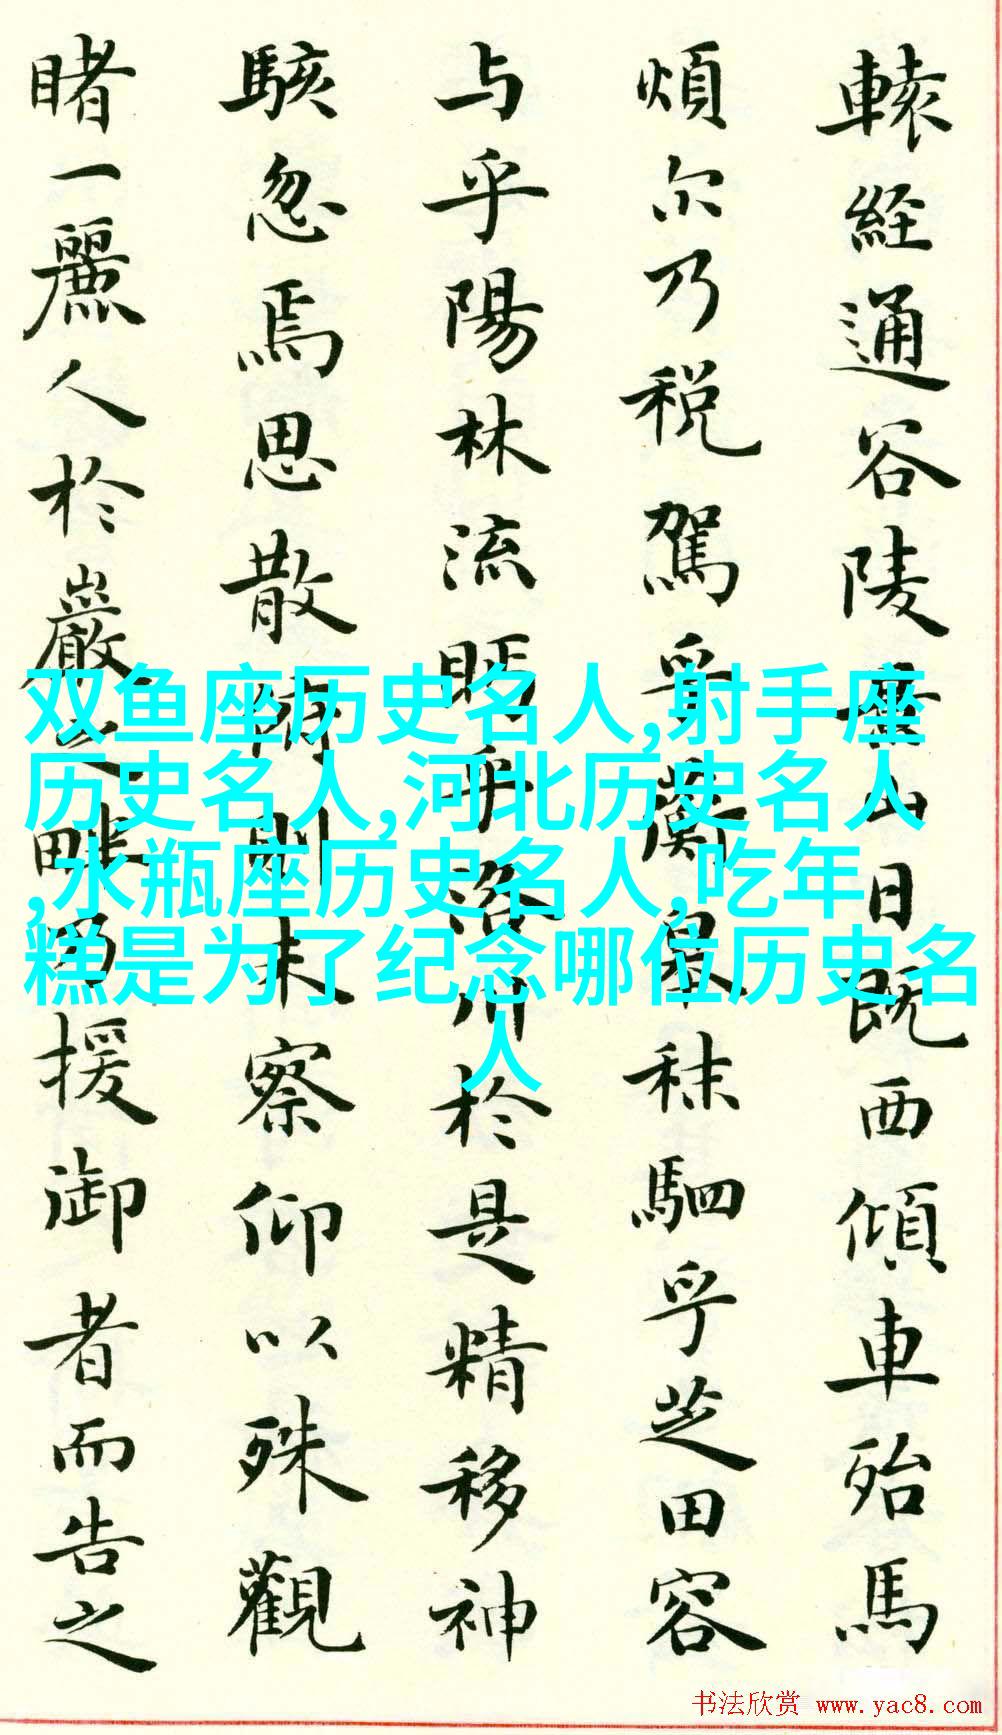 轅経通谷陵景山日既西傾車殆馬
煩尔乃税駕乎蘅皋秣駟乎芝田容
与乎陽林流眄乎洛川於是精移神
駭忽焉思散俯則未察仰以殊觀
睹一麗人於巖之畔乃援御者而告之
双鱼座历史名人,射手座
历史名人,河北历史名人
,水瓶座历史名人,吃年
糕是为了纪念哪位历史名
人
书法欣赏 www.yac8.com